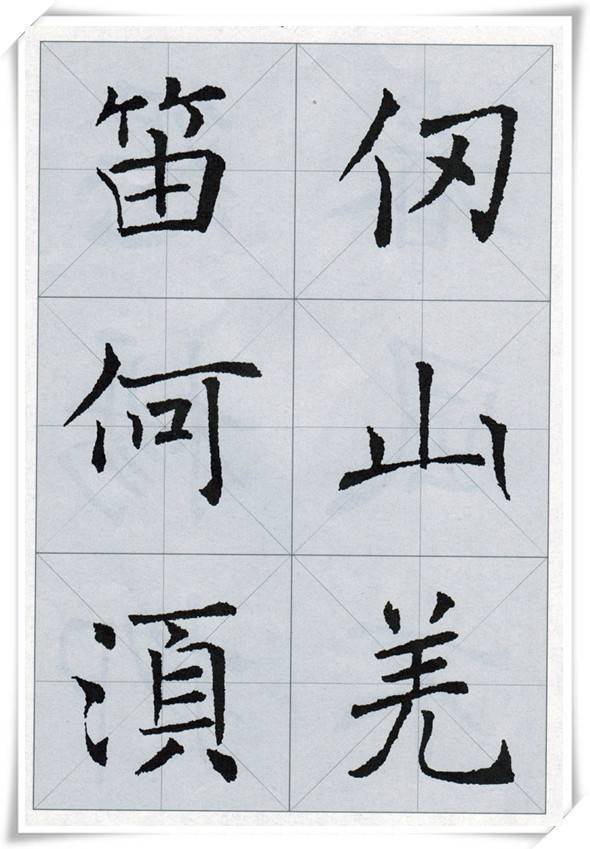 仞山羌
笛何湏